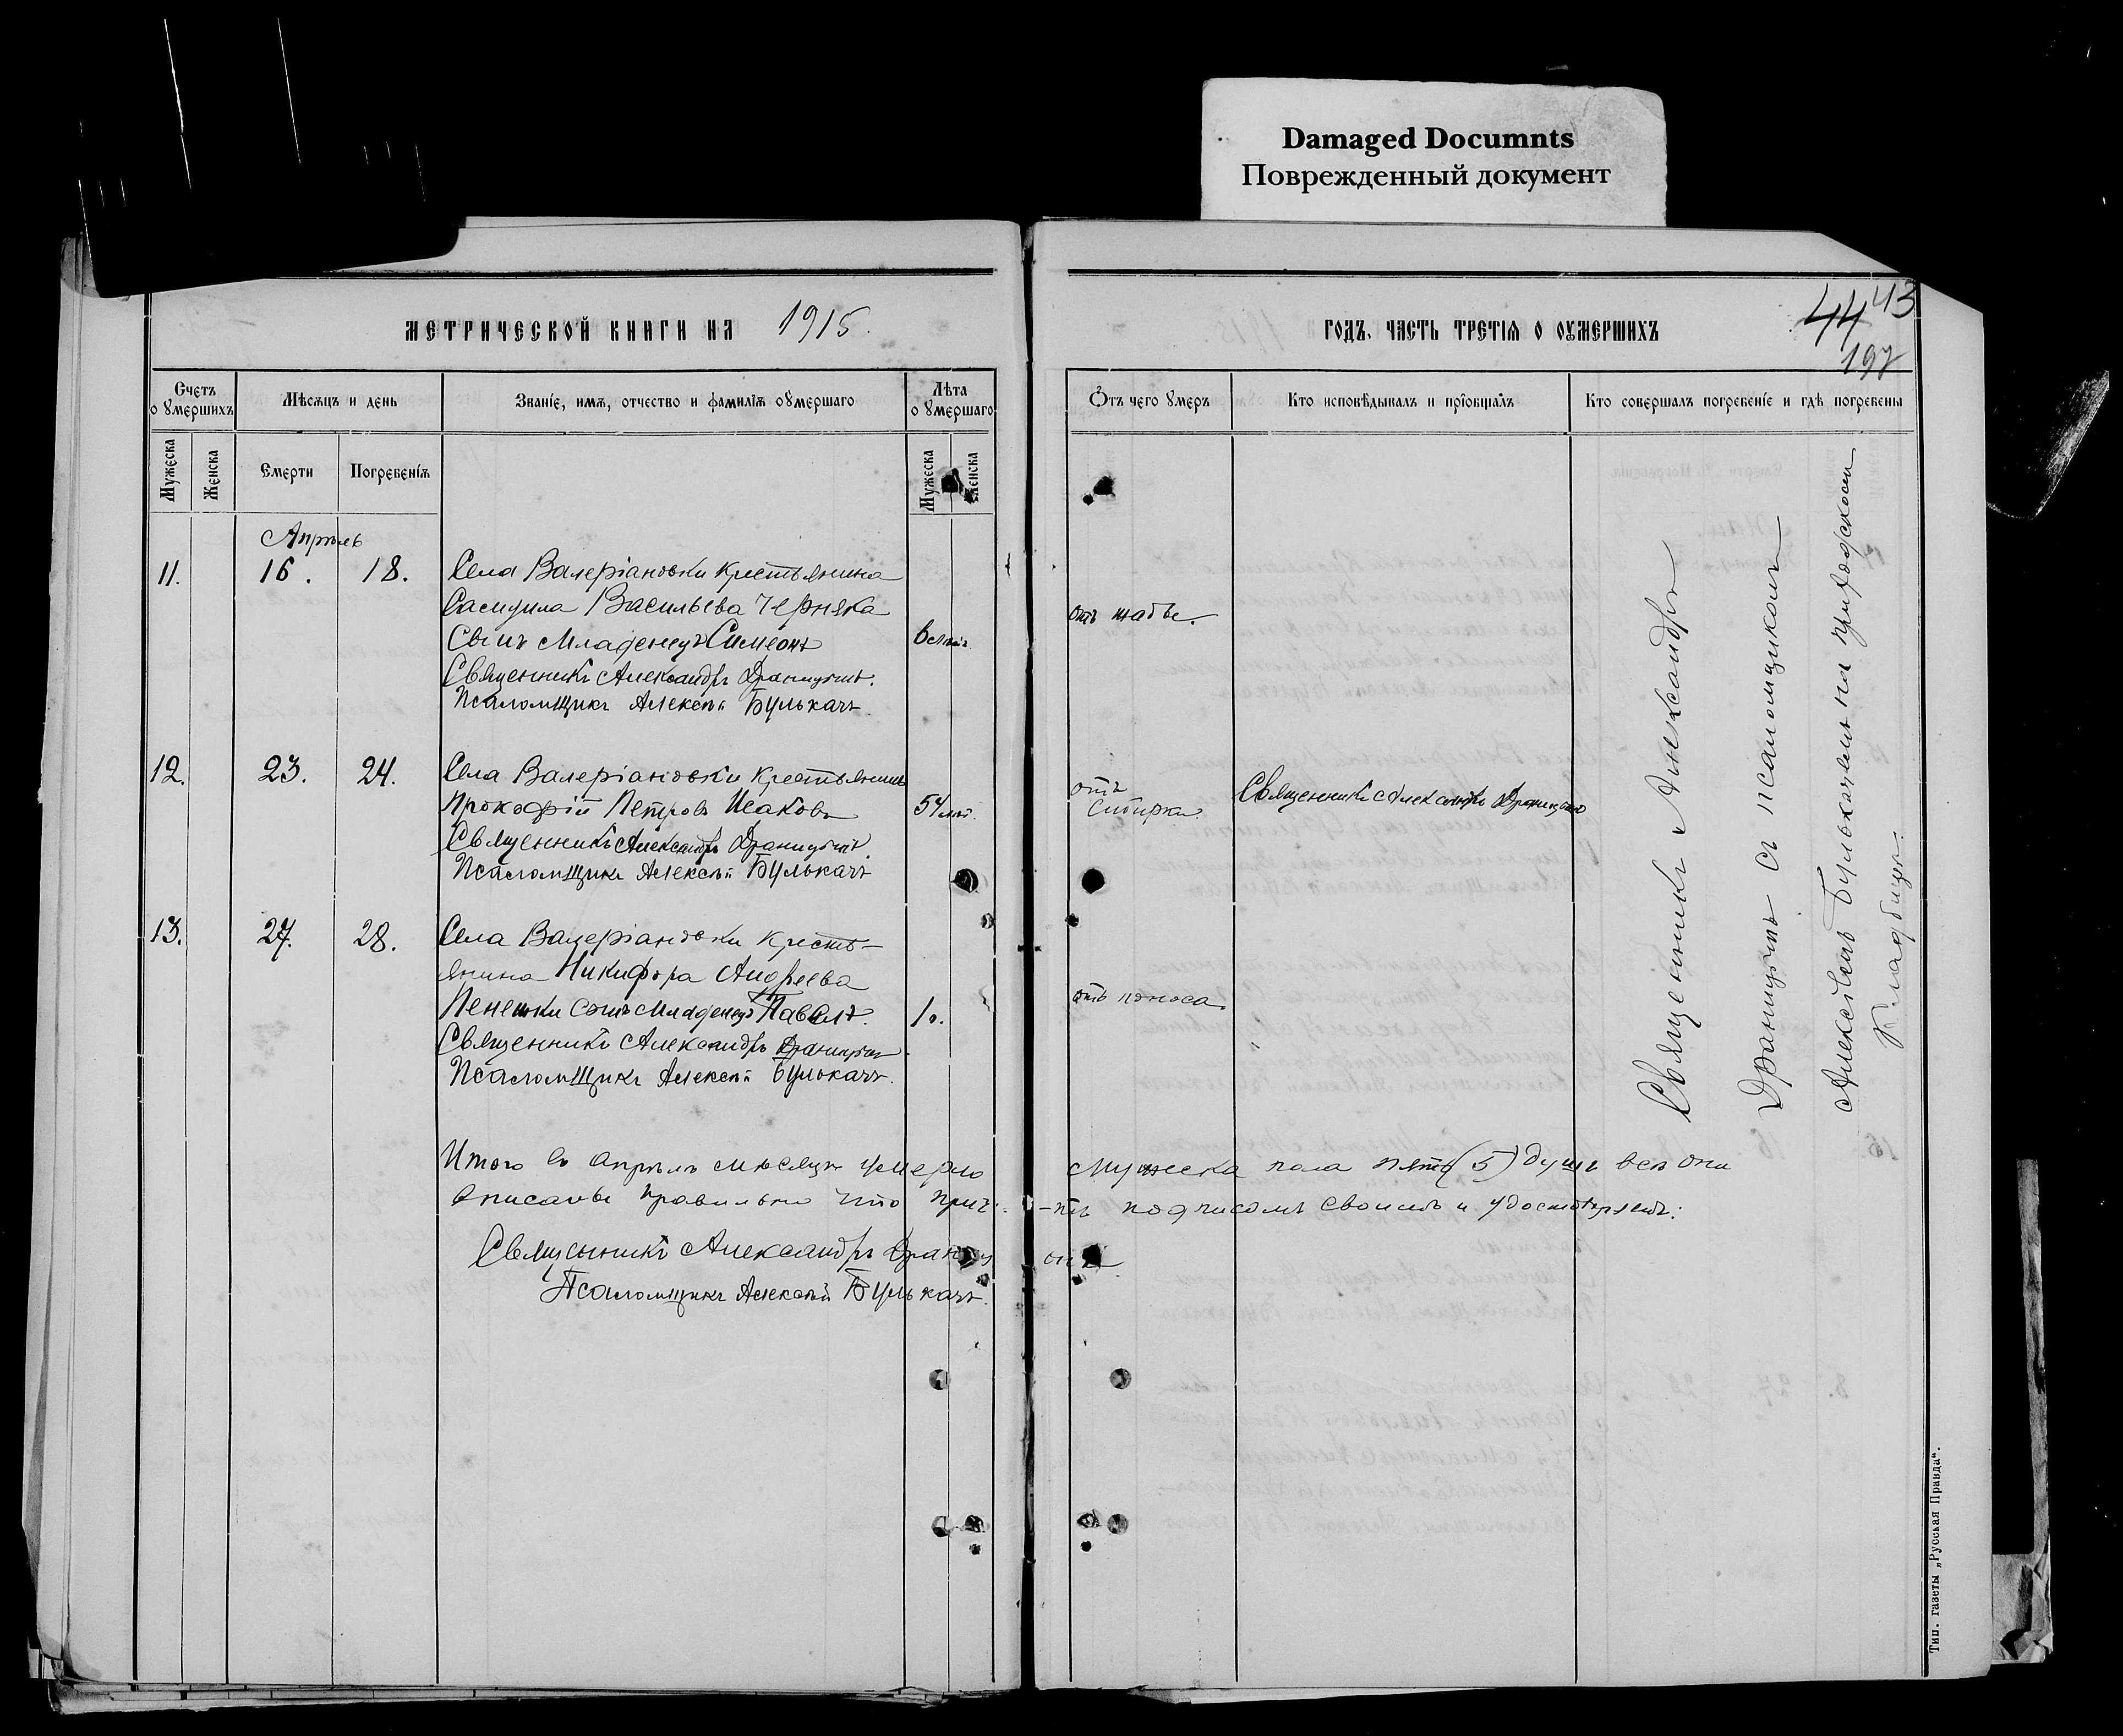 Damaged Documnts
Поврежденный документ
МЕТРИЧЕСКОЙ КНИГИ НА 1915.
ГОДЪ, ЧАСТЬ ТРЕТІЯ О ОУМЕРШИХЪ
44 43
197
Счетъ о умершихъ
Мѣсяцъ и день
Званіе, имя, отчество и фамилія оумершаго
Лѣта о умершаго
Отъ чего умеръ
Кто исповѣдывалъ и пріобщалъ
Кто совершалъ погребеніе и гдѣ погребены
Мужеска
Женска
Смерти
Погребенія
Мужеска
Женска
Апрѣль
11. 16. 18. Села Валеріановки крестьянина
Самуила Васильева Черняка
сынъ младенецъ Симеонъ
отъ жабы.
Священникъ Александръ Драницынъ.
Псаломщикъ Алексѣй Булькачъ
12. 23. 24. Села Валеріановки крестьянинъ
Прокофій Петровъ Исаковъ 54 лѣт.
отъ
Священникъ Александръ Драницынъ
Священникъ Александръ Драницынъ.
Псаломщикъ Алексѣй Булькачъ
13. 27. 28. Села Валеріановки кресть-
янина Никифора Андреева
сынъ младенецъ Павелъ. 1 о.
отъ поноса
Священникъ Александръ Драницынъ
Псаломщикъ Алексѣй Булькачъ.
Священникъ Александръ
Драницынъ съ псаломщикомъ
Алексѣемъ Булькачемъ на приходскомъ
кладбищѣ.
Итого въ апрѣлѣ мѣсяцѣ умерло мужеска пола пять (5) душъ всѣ они
описаны правильно что причтъ подписомъ своимъ и удостовѣряетъ:
Священникъ Александръ Драницынъ
Псаломщикъ Алексѣй Булькачъ.
Тип. газеты „Русская Правда“.